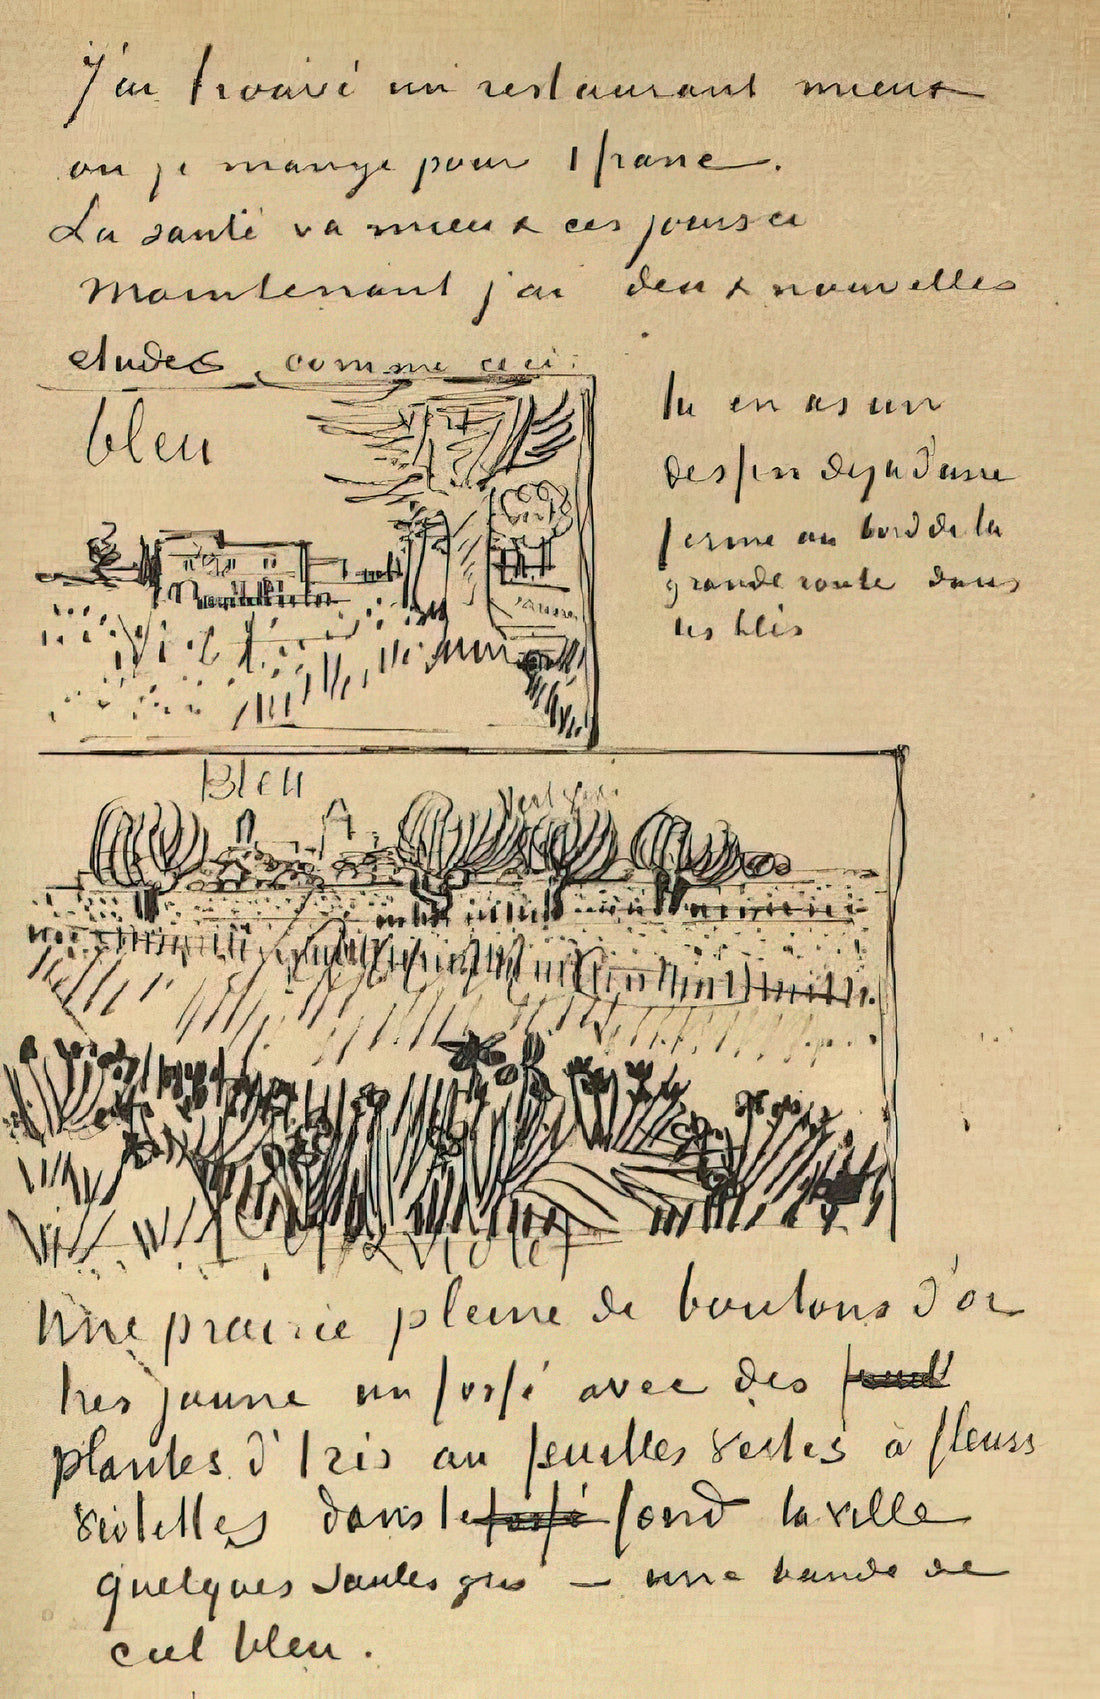 J'ai trouvé un restaurant mieux
ou je mange pour 1 franc.
La santé va mieux ces jours ci
Maintenant j'ai deux nouvelles
etudes, comme ceci:
tu en as un
dessin deja d'une
ferme au bord de la
grande route dans
les blés
bleu
vert
vert
jaune
Bleu
vert gris
Violet
Une prairie pleine de boutons d'or
tres jaune un fossé avec des
plantes d'Iris au feuilles vertes à fleurs
violettes dans le fossé fond la ville
quelques saules gris – une bande de
ciel bleu.